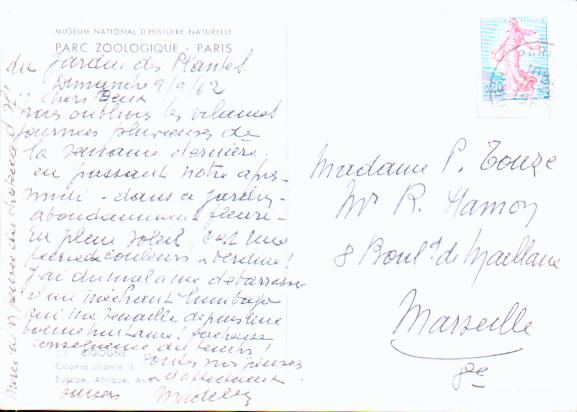 MUSÉUM NATIONAL D'HISTOIRE NATURELLE
PARC ZOOLOGIQUE - PARIS
du Jardin des Plantes
Dimanche 9/9/62
chers deux
nous oublions les vilaines
journées pluvieuses de
la semaine dernière
en passant notre après-
midi - dans ce jardin -
abondamment fleuri -
En plein soleil, c'est une
féerie de couleurs & verdure!
J'ai du mal a me débarrasser
d'un méchant lumbago
qui me tenaille depuis une
bonne huitaine!
conséquence du temps!
CIGOGNE
toutes nos pensées
Ciconia ciconia (L.)
d'affectueux
Europe, Afrique,
Merci
RÉPUBLIQUE FRANÇAISE
0,20
Madame P. Touze
Mr R. Hamon
8 Boul.d de Maillane
Marseille
8e